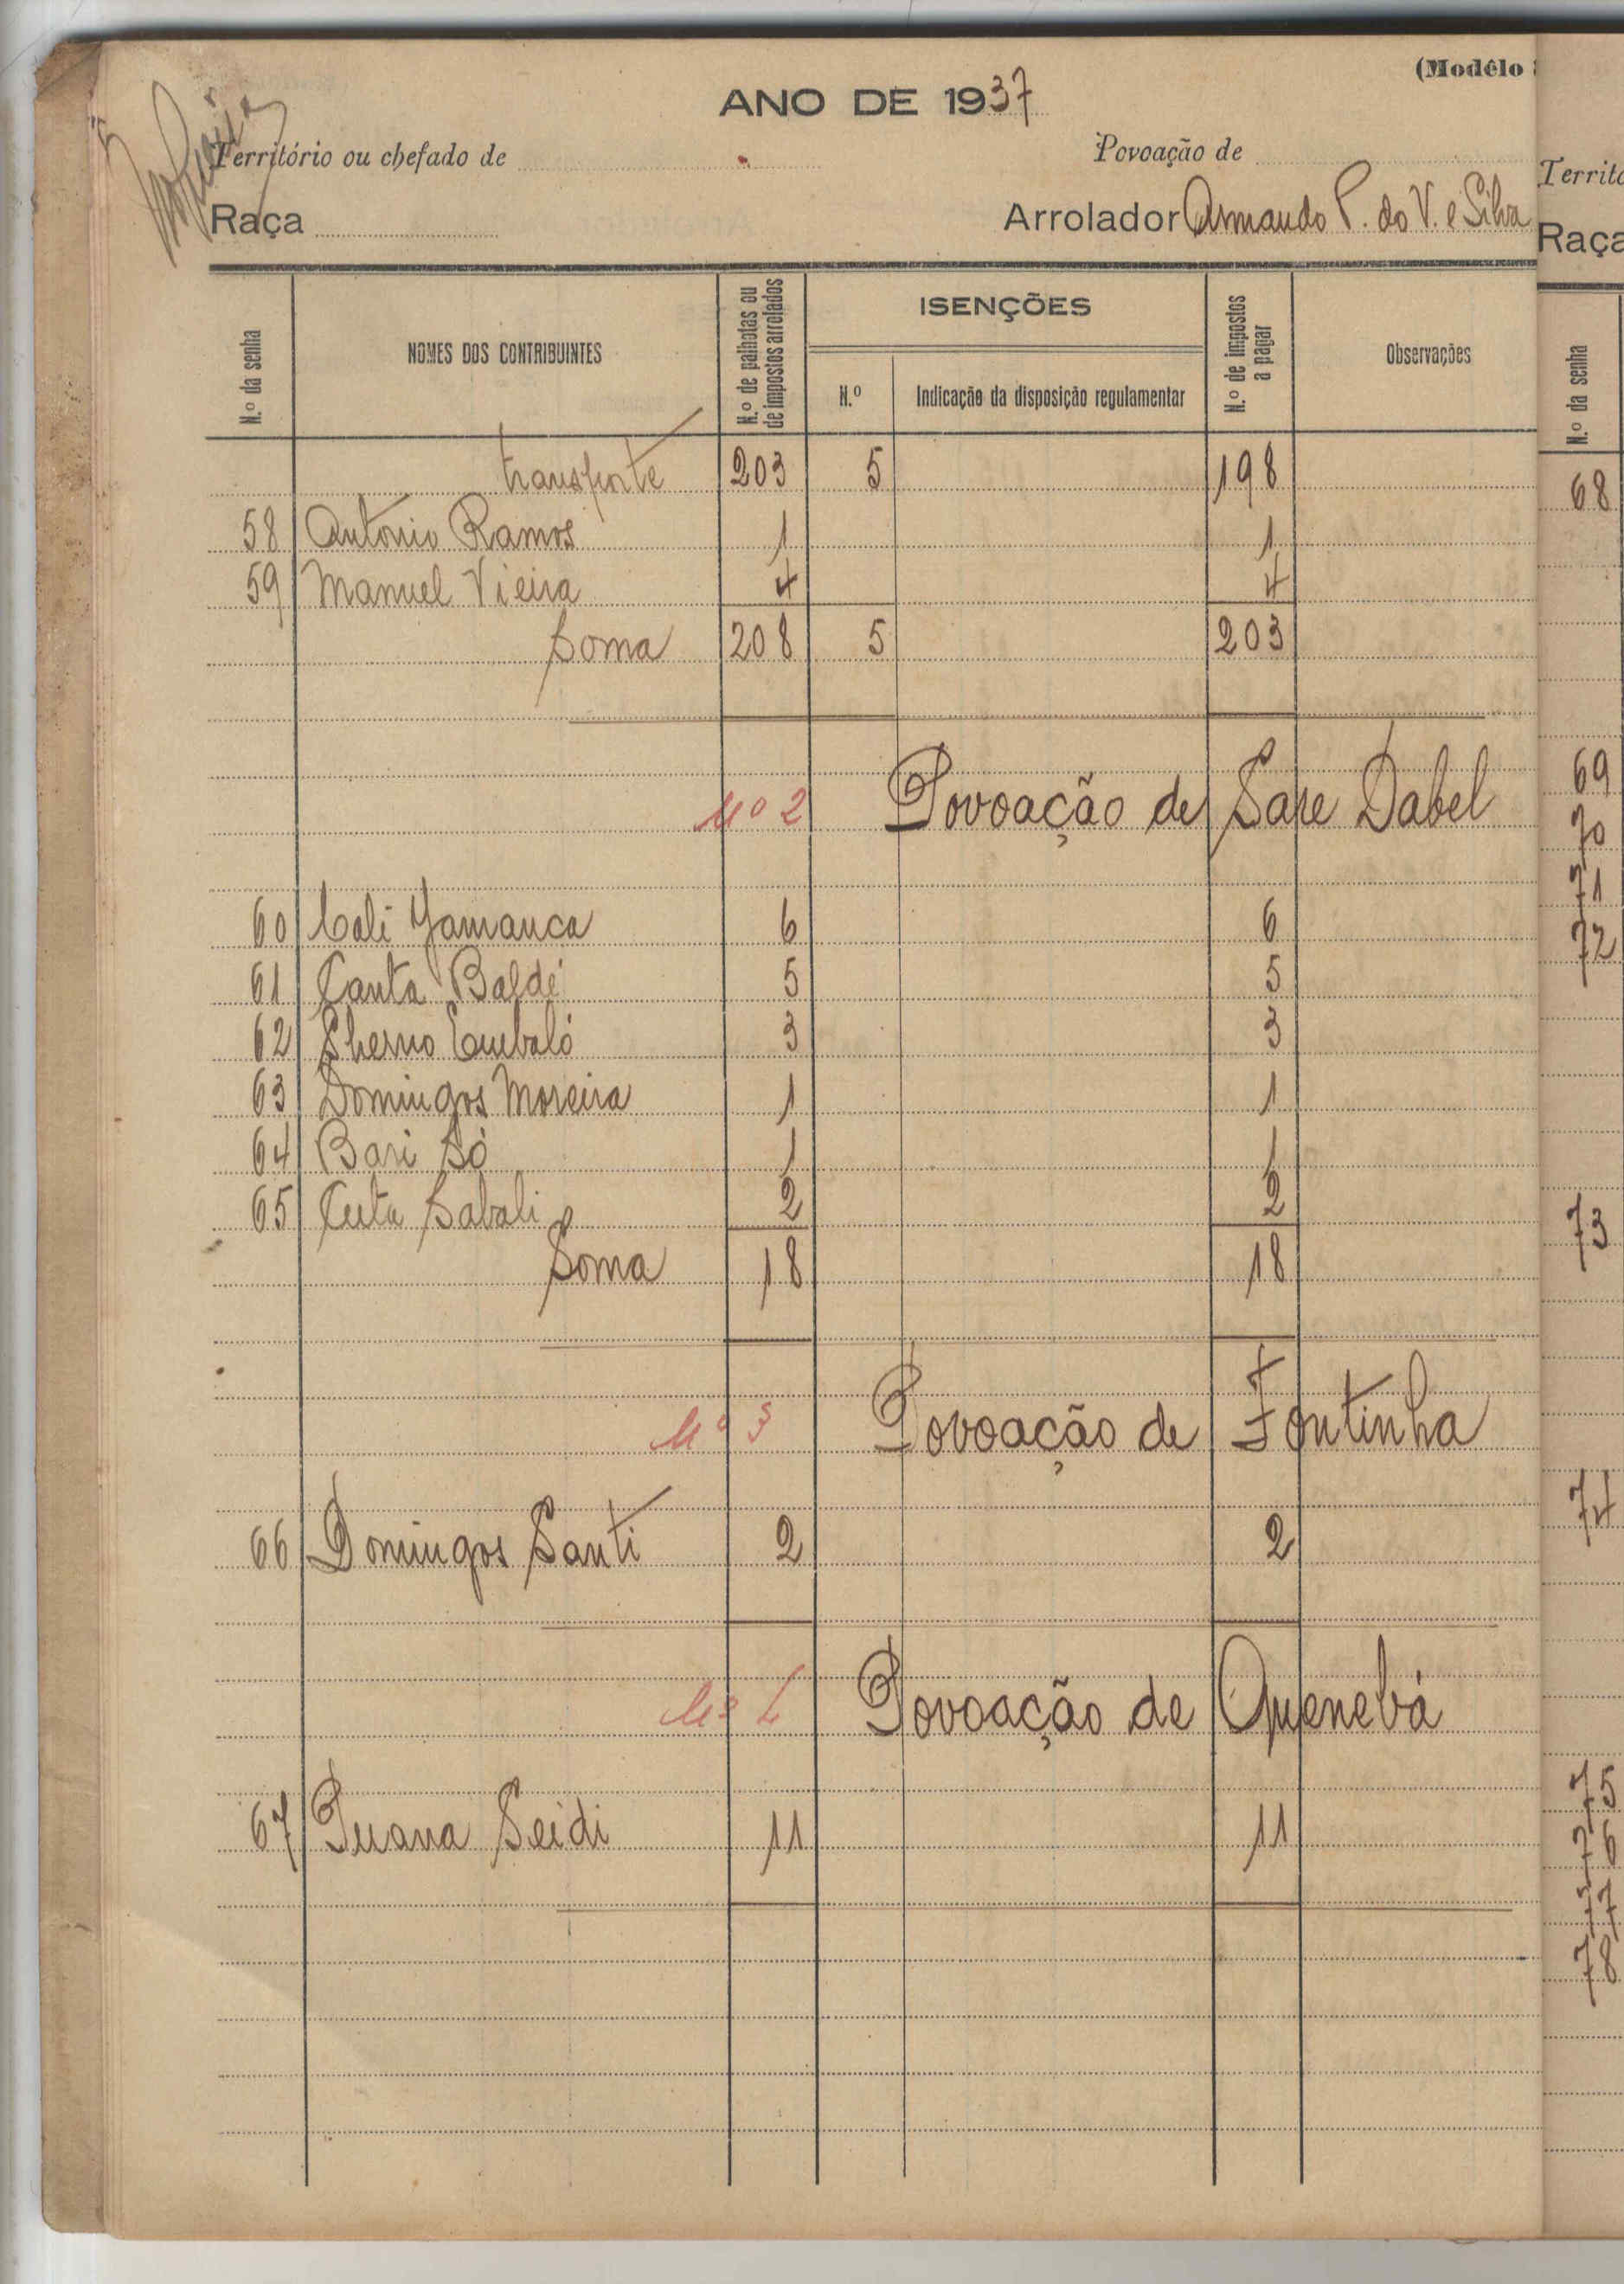 (Modêlo
ANO DE 1937
Território ou chefado de
Povoação de
Raça
Arrolador Armando P. do V. e Silva
N.º da senha
NOMES DOS CONTRIBUINTES
N.º de palhotas ou de impostos arrolados
ISENÇÕES
N.º
Indicação da disposição regulamentar
N.º de impostos a pagar
Observações
transporte 203 5 198
58 António Ramos 1 1
59 Manuel Vieira 4 4
Soma 208 5 203
Nº 2 Povoação de Sare Dabel
60 Cali Jamanca 6 6
61 Canta Baldé 5 5
62 Embaló 3 3
63 Domingos Moreira 1 1
64 Bari Só 1 1
65 Sabali 2 2
Soma 18 18
Nº 3 Povoação de Fontinha
66 Domingos Santi 2 2
Nº 4 Povoação de Quenebá
67 Seidi 11 11
Territó
Raça
N.º da senha
68
69
70
71
72
73
74
75
76
77
78